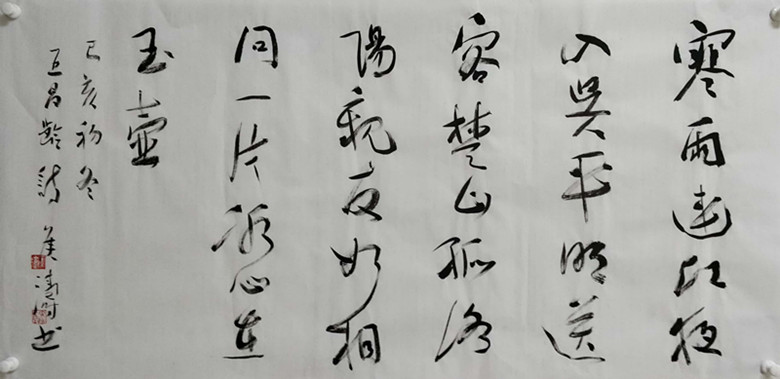 寒雨連江夜
入吳平明送
客楚山孤洛
陽親友如相
問一片冰心在
玉壺
己亥初冬
王昌齡詩 書